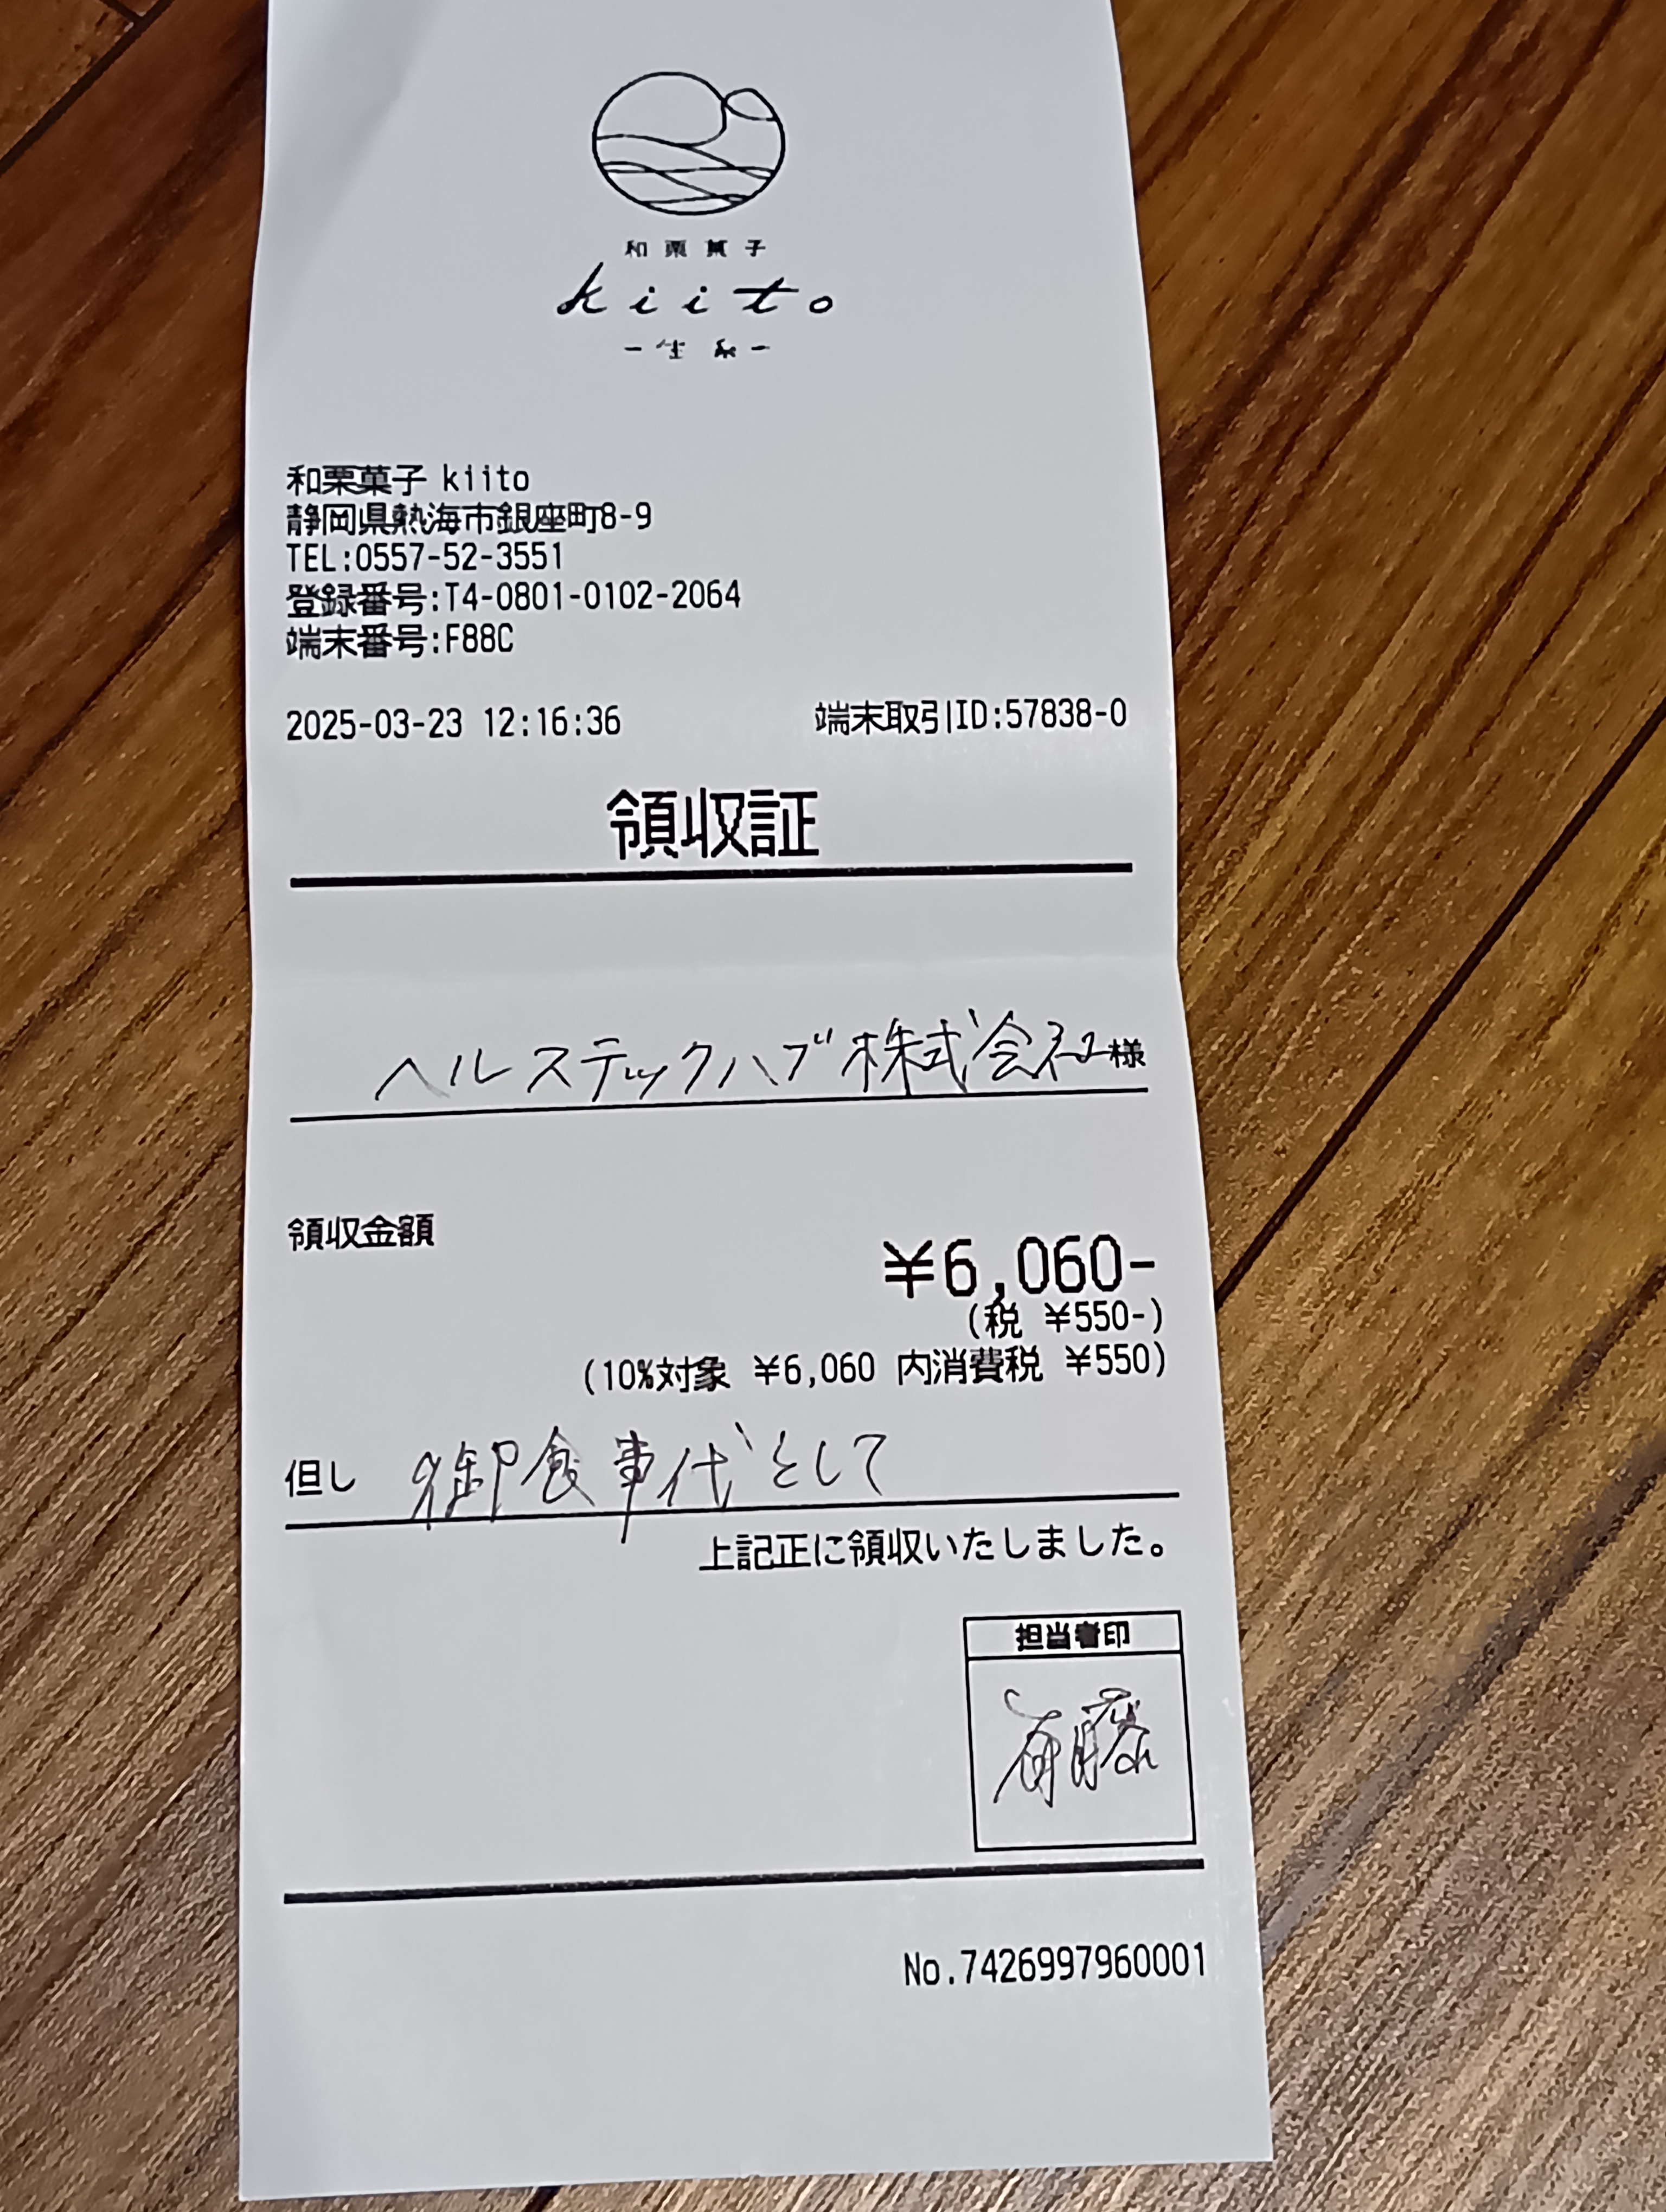 和栗菓子
kiito
-生糸-
和栗菓子 kiito
静岡県熱海市銀座町8-9
TEL:0557-52-3551
登録番号:T4-0801-0102-2064
端末番号:F88C
2025-03-23 12:16:36 端末取引ID:57838-0
領収証
ヘルステックハブ株式会社様
領収金額
¥6,060-
(税 ¥550-)
(10%対象 ¥6,060 内消費税 ¥550)
但し 御食事代として
上記正に領収いたしました。
担当者印
No.7426997960001